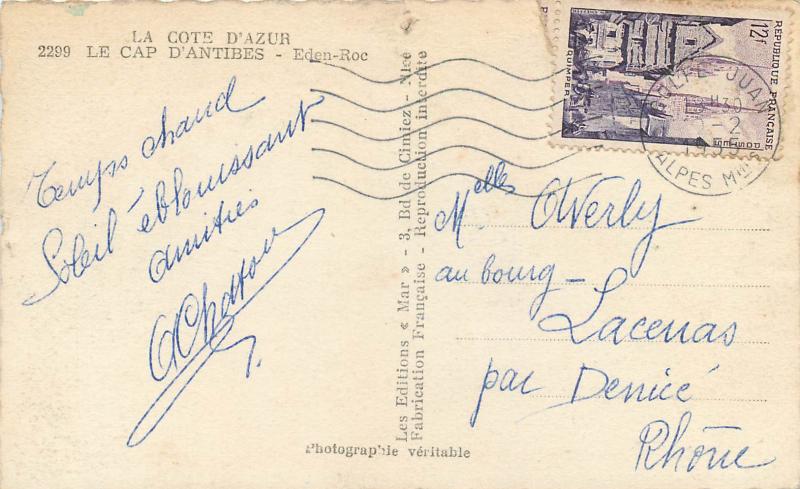 LA COTE D'AZUR
2299 LE CAP D'ANTIBES - Eden-Roc
Temps chaud
Soleil éblouissant
amitiés
Les Editions « Mar » - 3, Bd de Cimiez - Nice
Fabrication Française - Reproduction interdite
Photographie véritable
REPUBLIQUE FRANÇAISE
12f
POSTES
QUIMPER
GOLFE-JUAN
ALPES Mmes
Melles Overly
au bourg-
Lacenas
par Denicé
Rhône